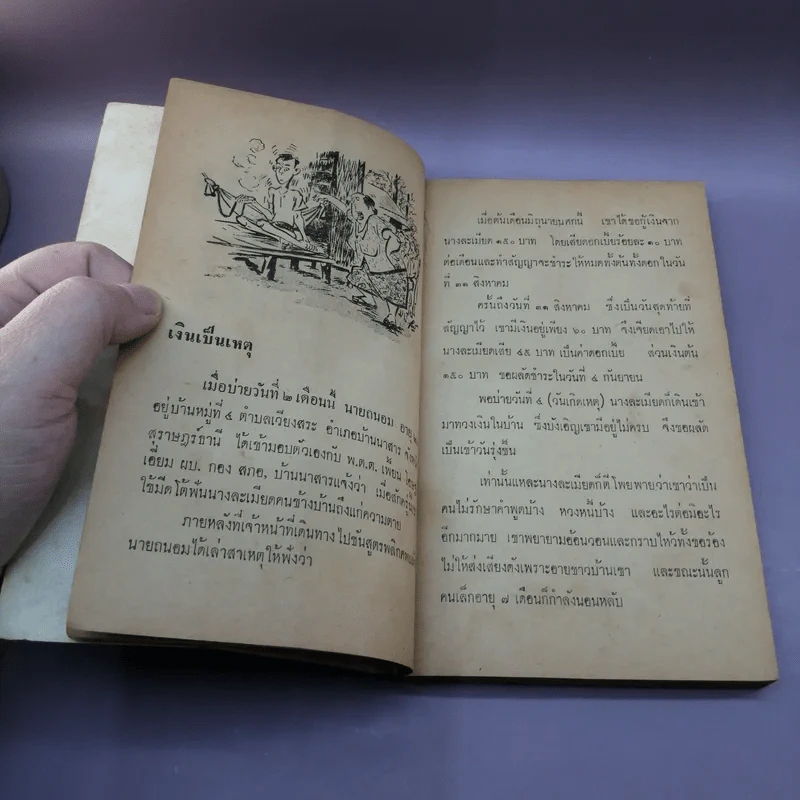 เงินเป็นเหตุ
เมื่อบ่ายวันที่ ๒ เดือนนี้ นายถนอม อายุ
อยู่บ้านหมู่ที่ ๔ ตำบลเวียงสระ อำเภอบ้านนาสาร
สุราษฎร์ธานี ได้เข้ามอบตัวเองกับ พ.ต.ต. เพี้ยน
เอี่ยม ผบ. กอง สภอ, บ้านนาสารแจ้งว่า เมื่อสักครู่นี้
ใช้มีดโต้ฟันนางละเมียดคนข้างบ้านถึงแก่ความตาย
ภายหลังที่เจ้าหน้าที่เดินทางไปชันสูตรพลิกศพ
นายถนอมได้เล่าสาเหตุให้ฟังว่า
เมื่อต้นเดือนมิถุนายนศกนี้ เขาได้ขอกู้เงินจาก
นางละเมียด ๑๕๐ บาท โดยเสียดอกเบี้ยร้อยละ ๑๐ บาท
ต่อเดือนและทำสัญญาจะชำระให้หมดทั้งต้นทั้งดอกในวัน
ที่ ๓๑ สิงหาคม
ครั้นถึงวันที่ ๓๑ สิงหาคม ซึ่งเป็นวันสุดท้ายที่
สัญญาไว้ เขามีเงินอยู่เพียง ๖๐ บาท จึงเจียดเอาไปให้
นางละเมียดเสีย ๔๕ บาท เป็นค่าดอกเบี้ย ส่วนเงินต้น
๑๕๐ บาท ขอผลัดชำระในวันที่ ๔ กันยายน
พอบ่ายวันที่ ๔ (วันเกิดเหตุ) นางละเมียดก็เดินเข้า
มาทวงเงินในบ้าน ซึ่งบังเอิญเขามีอยู่ไม่ครบ จึงขอผลัด
เป็นเช้าวันรุ่งขึ้น
เท่านั้นแหละนางละเมียดก็ตีโพยพายว่าเขาว่าเป็น
คนไม่รักษาคำพูดบ้าง หวงหนี้บ้าง และอะไรต่อมิอะไร
อีกมากมาย เขาพยายามอ้อนวอนและกราบไหว้ทั้งขอร้อง
ไม่ให้ส่งเสียงดังเพราะอายชาวบ้านเขา และขณะนั้นลูก
คนเล็กอายุ ๗ เดือนก็กำลังนอนหลับ